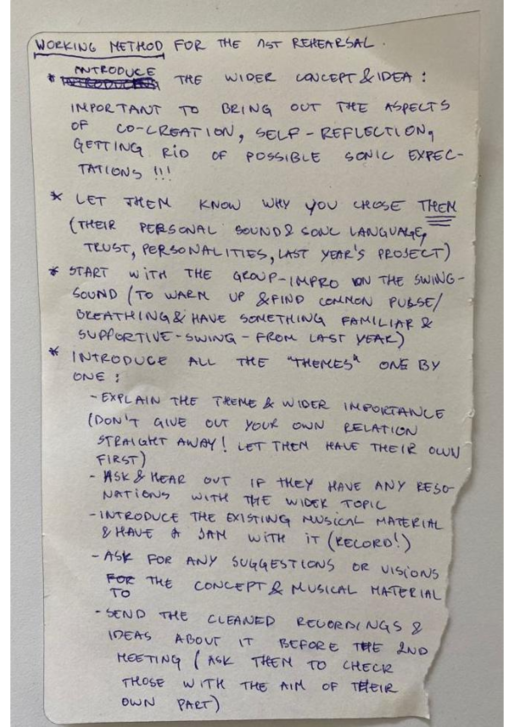 WORKING METHOD FOR THE 1ST REHEARSAL.
* INTRODUCE THE WIDER CONCEPT & IDEA :
IMPORTANT TO BRING OUT THE ASPECTS
OF CO-CREATION, SELF-REFLECTION,
GETTING RID OF POSSIBLE SONIC EXPEC-
TATIONS !!!
* LET THEM KNOW WHY YOU CHOSE THEM
(THEIR PERSONAL SOUND & SONIC LANGUAGE,
TRUST, PERSONALITIES, LAST YEAR'S PROJECT)
* START WITH THE GROUP-IMPRO ON THE SWING-
SOUND (TO WARM UP & FIND COMMON PULSE/
BREATHING & HAVE SOMETHING FAMILIAR &
SUPPORTIVE - SWING - FROM LAST YEAR)
* INTRODUCE ALL THE "THEMES" ONE BY
ONE :
- EXPLAIN THE THEME & WIDER IMPORTANCE
(DON'T GIVE OUT YOUR OWN RELATION
STRAIGHT AWAY! LET THEM HAVE THEIR OWN
FIRST)
- ASK & HEAR OUT IF THEY HAVE ANY RESO-
NATIONS WITH THE WIDER TOPIC
- INTRODUCE THE EXISTING MUSICAL MATERIAL
& HAVE A JAM WITH IT (RECORD!)
- ASK FOR ANY SUGGESTIONS OR VISIONS
TO THE CONCEPT & MUSICAL MATERIAL
- SEND THE CLEANED RECORDINGS &
IDEAS ABOUT IT BEFORE THE 2ND
MEETING (ASK THEM TO CHECK
THOSE WITH THE AIM OF THEIR
OWN PART)